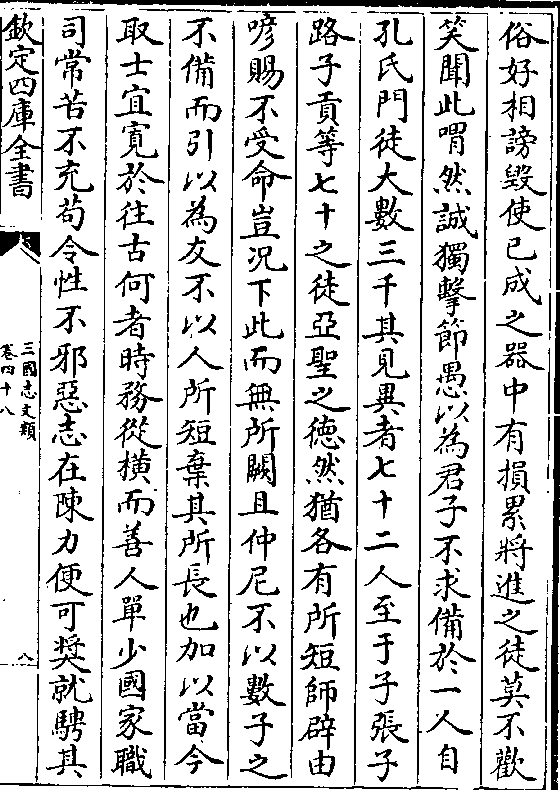 俗好相謗毁使已成之器中有損累將進之徒莫不歡
笑聞此喟然誠獨擊節愚以為君子不求備於一人自
孔氏門徒大數三千其見異者七十二人至于子張子
路子貢等七十之徒亞聖之德然猶各有所短師辟由
喭賜不受命豈況下此而無所闕且仲尼不以數子之
不備而引以為友不以人所短棄其所長也加以當今
取士宜寛於往古何者時務從横而善人單少國家職
司常苦不充苟令性不邪惡志在陳力便可奬就騁其
欽定四庫全書
三國志文類
卷四十八
八